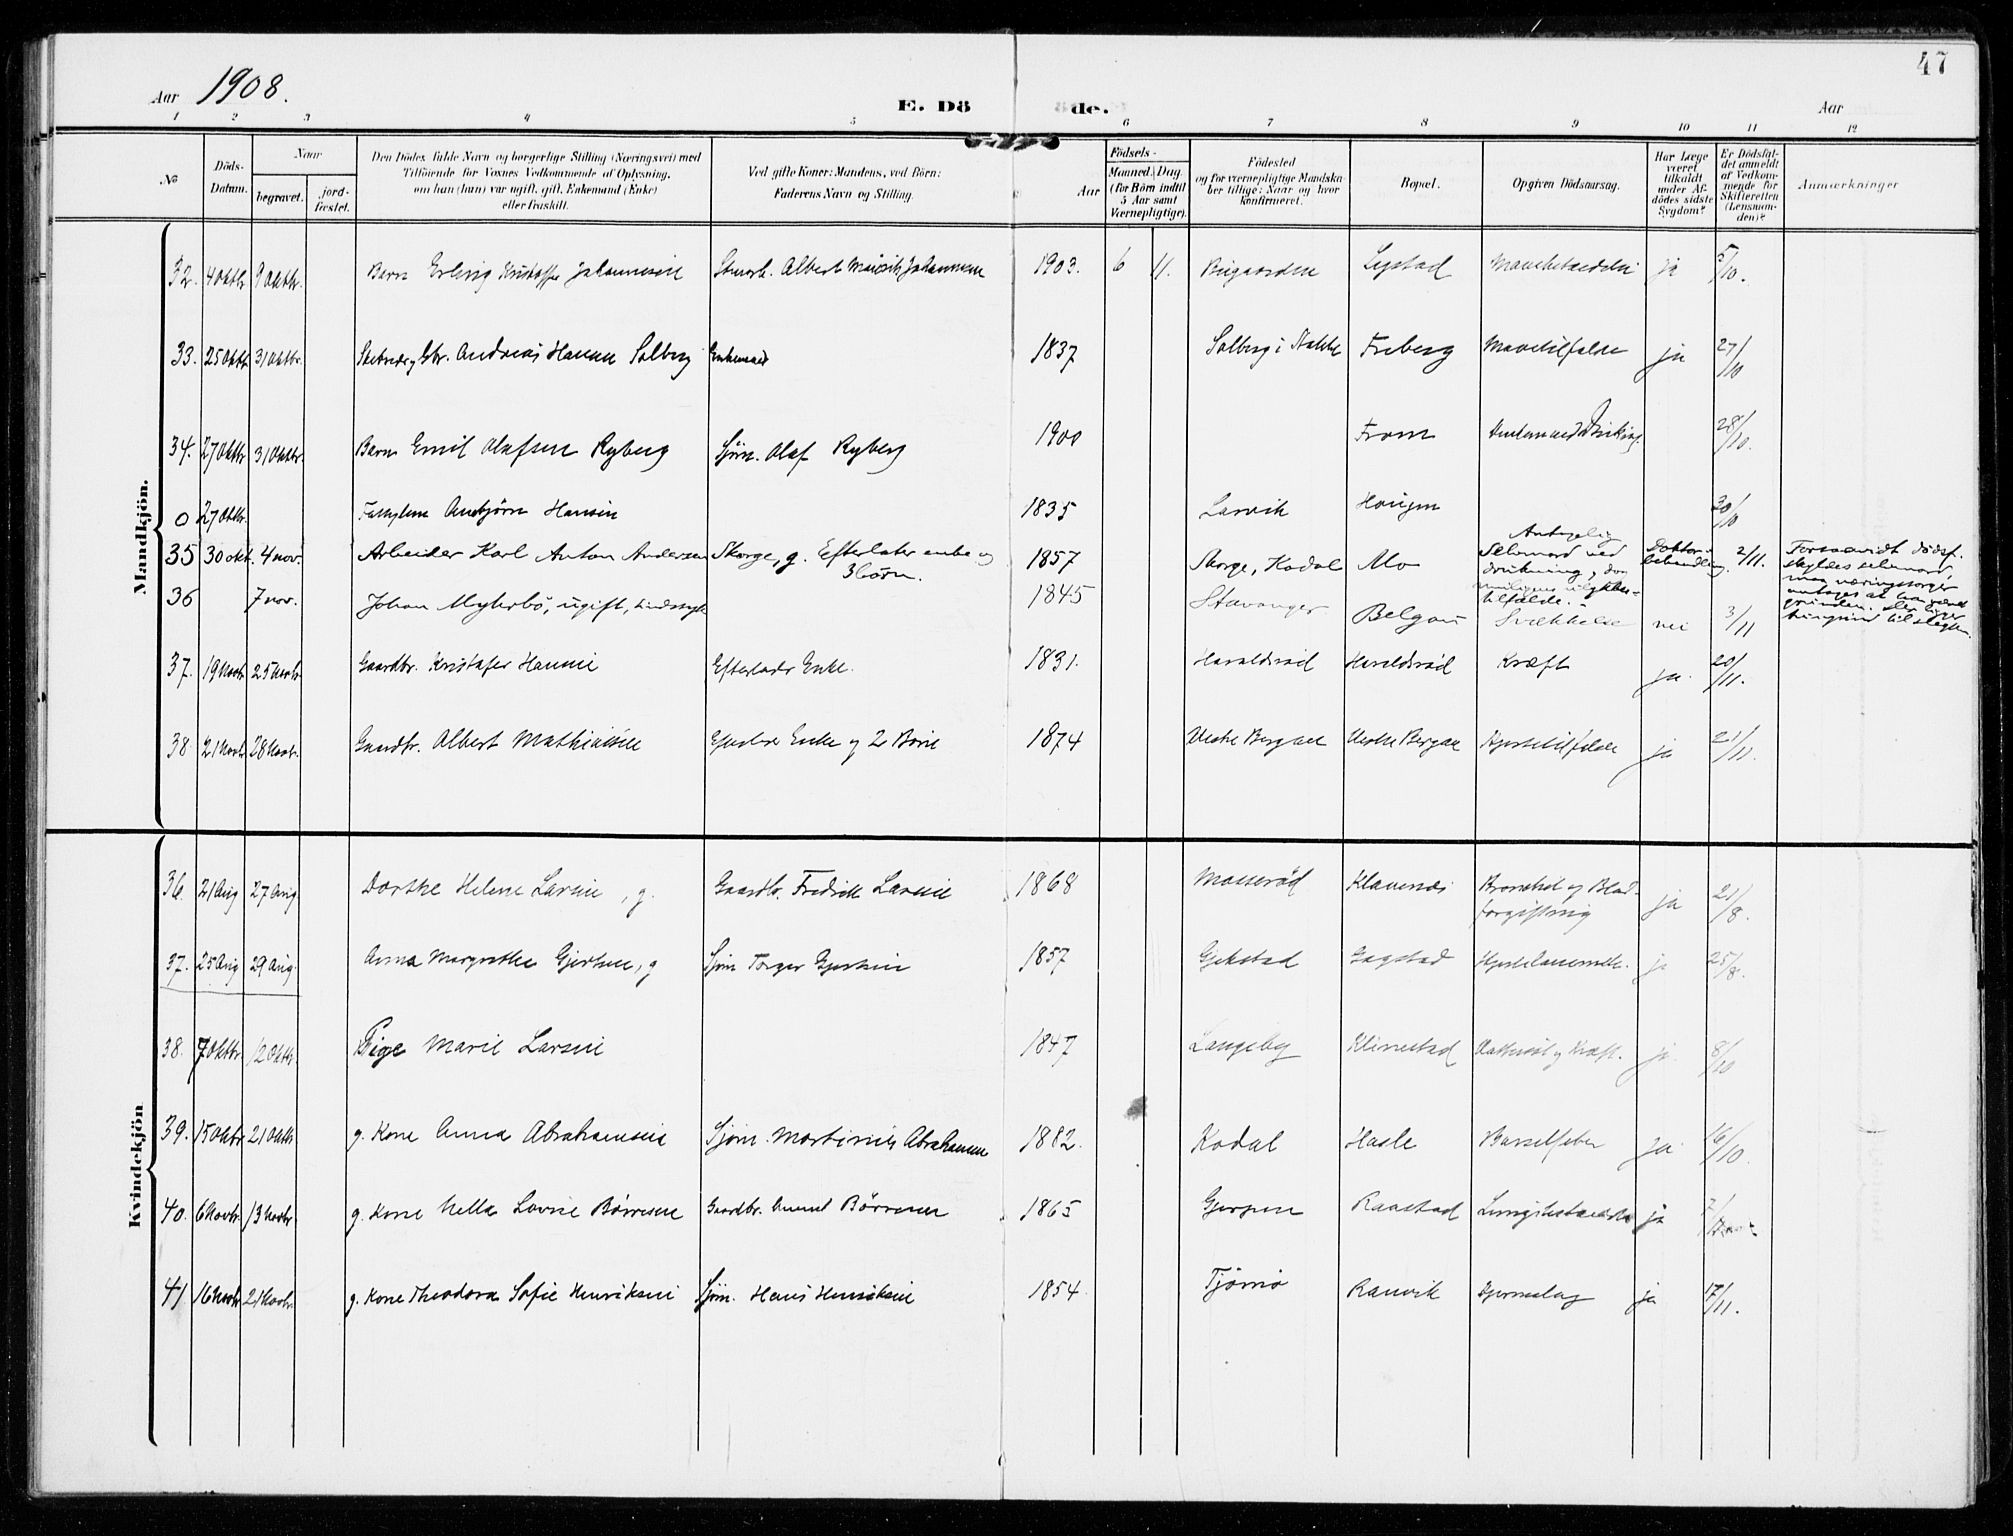 47
Aar 1908. E. Dö de. Aar
1 2 3 4 5 6 7 8 9 10 11 12
No
Döds-Datum.
Naar
begravet.
jord-fæstet.
Den Dödes fulde Navn og borgerlige Stilling (Næringsvei) med
Tilföiende for Voxnes Vedkommende af Oplysning,
om han (hun) var ugift, gift, Enkemand (Enke)
eller fraskilt.
Ved gifte Koner: Mandens, ved Börn:
Faderens Navn og Stilling.
Aar
Födsels-
Maaned. Dag
(for Börn indtil
5 Aar samt
Værnepligtige).
Födested
og for værnepligtige Mandska-
ber tillige: Naar og hvor
konfirmeret.
Bopæl.
Opgiven Dödsaarsag.
Har Læge
været
tilkaldt
under Af-
dödes sidste
Sygdom?
Er Dödsfal-
det anmeldt
af Vedkom-
mende for
Skifteretten
(Lensman-
den)?
Anmærkninger
Mandkjön.
32. 4 Oktbr. 9 Oktbr. Barn Erling Kristoffer Johannesen Albert Johannesen 1903. 6 11. Lystad ja 5/10.
33. 25 Oktbr. 31 Oktbr. Andreas Hansen Solberg Enkemand 1837 Solberg i Freberg Mavetilfælde ja 27/10
34. 27 Oktbr. 31 Oktbr. Barn Emil Olafsen Ryberg Sjøm. Olaf Ryberg 1900 From 28/10.
0 27 Oktbr. Hansen 1835 Larvik Hougen 30/10
35 30 okt. 4 nov. Arbeider Karl Anton Andersen Skorge, g. Efterlater enke og
3 børn. 1857 Skorge, Kodal Mo Antagelig
Selvmord ved
drukning, dog
muligens ulykkes-
tilfælde. Doktor-
behandling. 2/11. Forsaavidt dødsf.
skyldes selvmord,
maa næringssorger
antages at han været
grunden. Der ligger
til slegten.
36 7 nov. Johan Myhrbö, ugift, 1845 Stavanger Belgau Svækkelse nei 3/11
37. 19 Novbr. 25 Novbr. Gaardbr. Kristofer Hansen Efterlader Enke. 1831. Haraldsrød Haraldsrød Kræft ja. 20/11.
38 21 Novbr. 28 Novbr. Gaardbr. Albert Mathiasen Enke og 2 Børn 1874 Vestre Bergan Vestre Bergan Hjertetilfælde ja 21/11.
Kvindekjön
36. 21 Aug 27 Aug. Dorthe Helene Larsen, g. Gaardbr. Fredrik Larsen 1868 Moserød Klavenæs Bronchit og Blod-
forgiftning ja 21/8.
37. 25 Aug 29 Aug. Anna Margrethe Gjertsen, g Sjøm Torger Gjertsen 1857 Gjekstad Gogstad Hjertelammelse. ja 25/8.
38. 7 Oktbr. 12 Oktbr. Pige Marie Larsen 1847 Langeby Klinestad og Kræft. ja. 8/10
39. 15 Oktbr 21 Oktbr g. Kone Anna Abrahamsen Sjøm. Martinius Abrahamsen 1882. Kodal Hasle Barselfeber ja 16/10.
40. 6 Novbr. 13 Novbr. g. Kone Lovise Børresen Gaardbr. Børresen 1865 Gjerpen Raastad Lungebetændelse ja
41 16 Novbr. 21 Novbr. g. Kone Theodora Sofie Henriksen Sjøm. Hans Henriksen 1854. Tjømø Ranvik Hjerneslag ja 17/11.